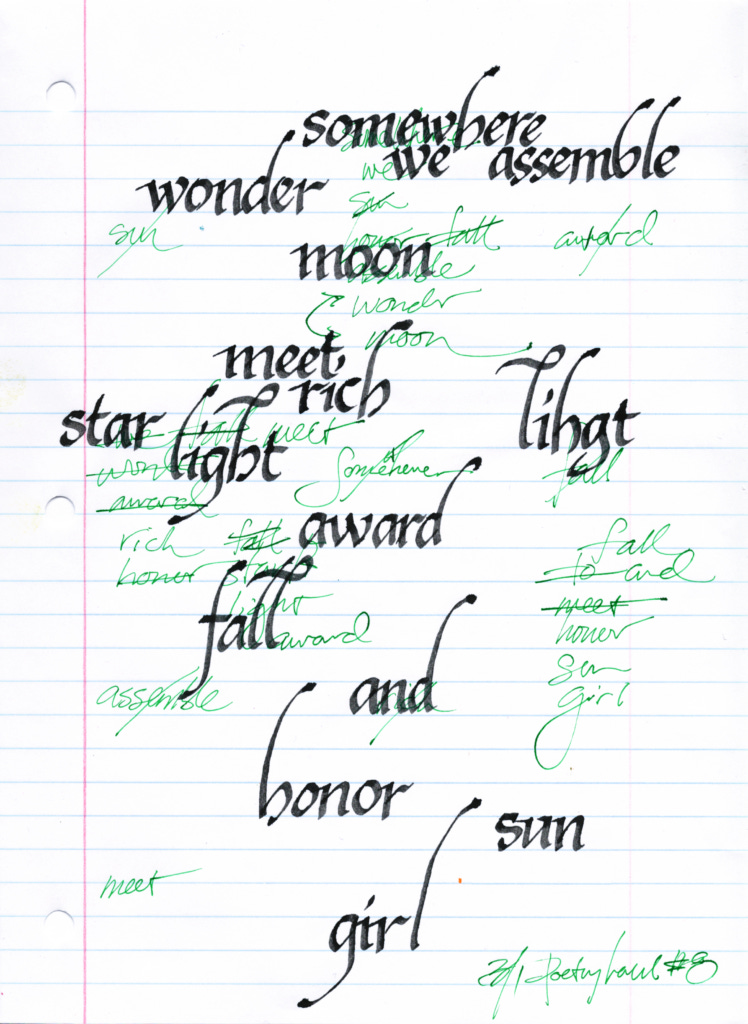 somewhere
somewhere
we assemble
we
wonder
sun
sun
honor fall
award
moon
assemble
wonder
moon
meet
rich
lihgt
star
light
fall meet
fall
award
award
rich fall
fall
honor star
to and
fall
light
meet
award
honor
sun
assemble
and
girl
honor
sun
meet
girl
3/1 Poetry haul #8